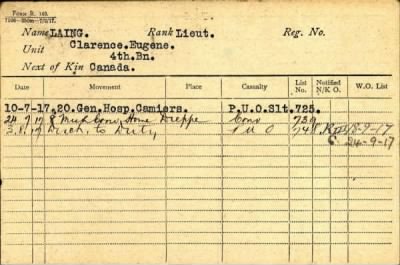 FORM R. 149.
Name LAING. Rank Lieut. Reg. No.
Clarence.Eugene.
Unit 4th.Bn.
Next of Kin Canada.
Date Movement Place Casualty List No. Notified N/K O. W.O. List
10-7-17. 20.Gen.Hosp.Camiers. P.U.O.Slt. 725.
24 7 17 8 Conv Home Dieppe Conv 739
3.8.17 Disch. to Duty P U O 748 18-9-17
24-9-17